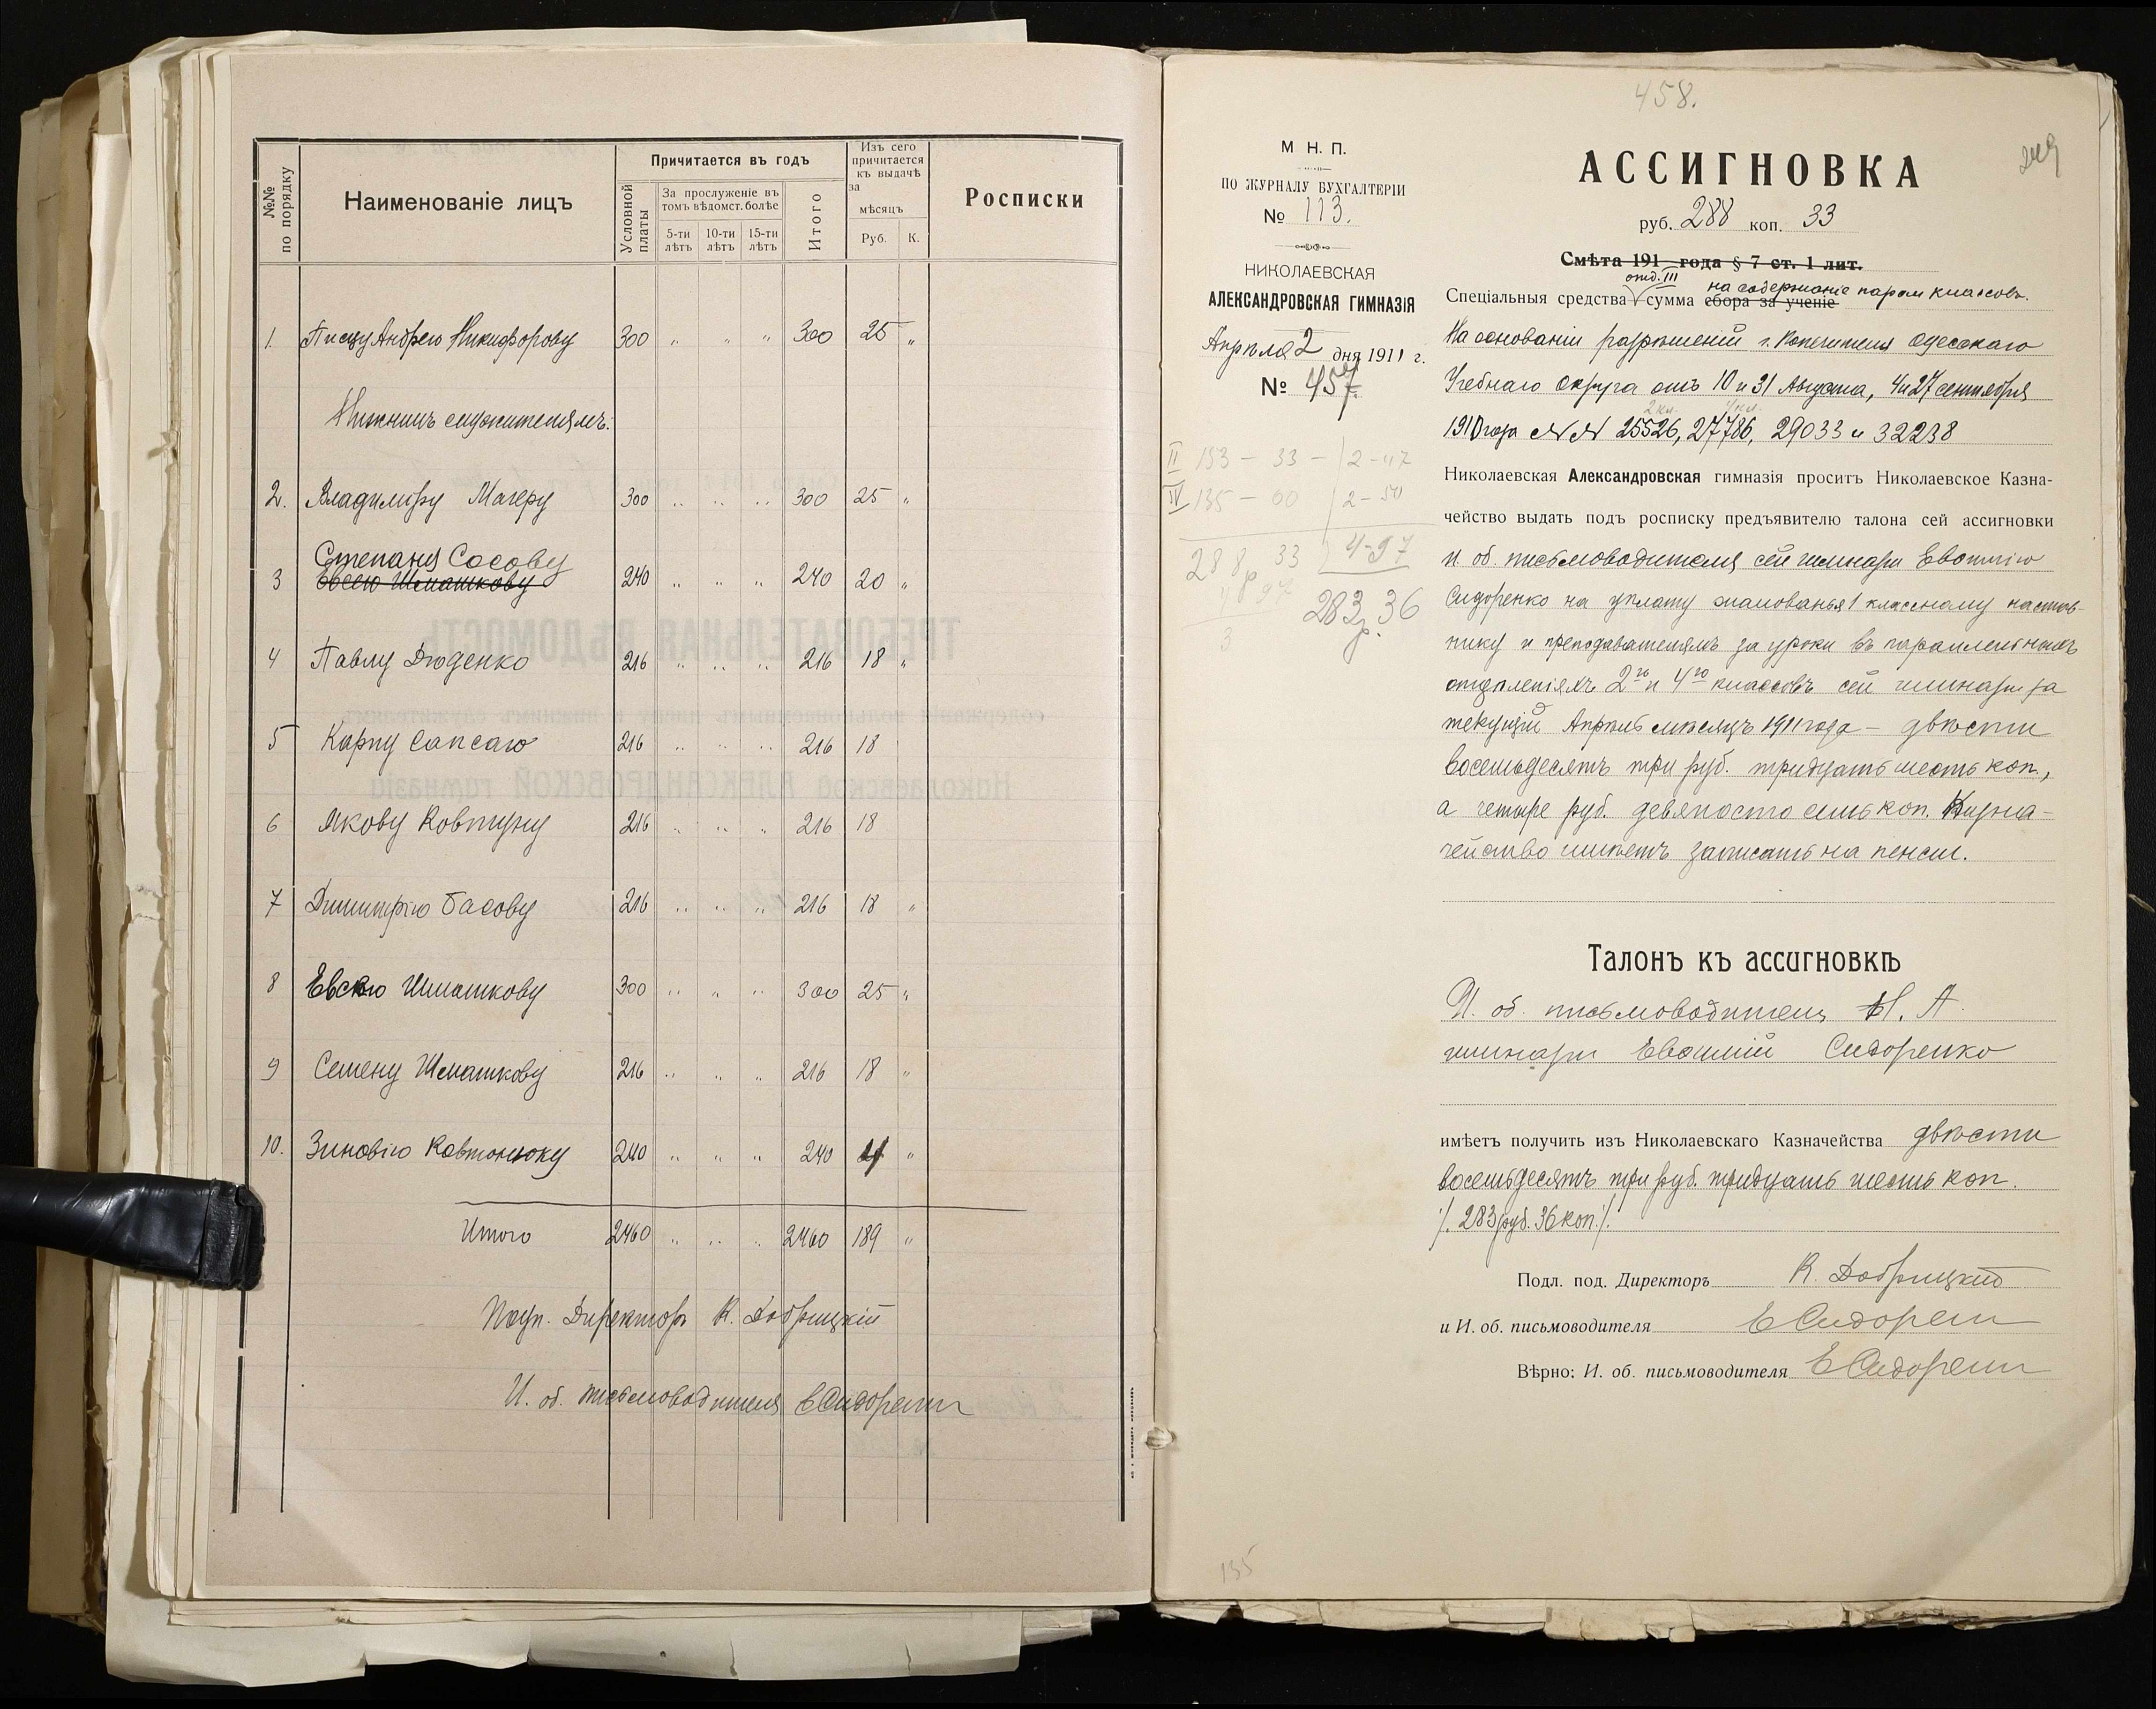 №№ по порядку
Наименованіе лицъ
Причитается въ годъ
Условной платы
За прослуженіе въ томъ вѣдомст. болѣе
5-ти лѣтъ
10-ти лѣтъ
15-ти лѣтъ
Итого
Изъ сего причитается къ выдачѣ за мѣсяцъ
Руб. К.
Росписки
1. Писцу Андрею Никифорову 300 " " " 300 25 "
Нижнимъ служителямъ:
2. Владиміру Магеру 300 " " " 300 25 "
Степану Сосову
3 Евсею Шматкову 240 " " " 240 20 "
4 Павлу Дюденко 216 " " " 216 18 "
5 Карпу Сапсаю 216 " " " 216 18
6 Якову Ковтуну 216 " " " 216 18
7 Димитрію Басову 216 " " " 216 18 "
8 Евсею Шматкову 300 " " " 300 25 "
9 Семену Шматкову 216 " " " 216 18 "
10. Зиновію Ковтонюку 240 " " " 240 "
Итого 2460 " " " 2460 189 "
Подп. Директоръ К. Добрицкій
И. об. письмоводителя Е Сидоренко
458.
М. Н. П.
ПО ЖУРНАЛУ БУХГАЛТЕРІИ
№ 113.
НИКОЛАЕВСКАЯ
АЛЕКСАНДРОВСКАЯ ГИМНАЗІЯ
Апрѣля 2 дня 1911 г.
№ 457
II 153 — 33 — 2-47
IV 135 — 00 2-50
288 33 4-97
4 97
283 р. 36
3
135
249
АССИГНОВКА
руб. 288 коп. 33
Смѣта 191 года § 7 ст. 1 лит.
отд. III на содержаніе парал классовъ.
Спеціальныя средства сумма сбора за ученіе
На основаніи разрѣшеній г. Попечителя Одесскаго
Учебнаго Округа отъ 10 и 31 Августа, 4 и 27 сентября
2 кл. 4 кл.
1910 года №№ 25526, 27786, 29033 и 32238
Николаевская Александровская гимназія проситъ Николаевское Казна-
чейство выдать подъ росписку предъявителю талона сей ассигновки
И. об. письмоводителя сей гимназіи Евфимію
Сидоренко на уплату жалованья 1 классному настав-
нику и преподавателямъ за уроки въ параллельныхъ
отдѣленіяхъ 2го и 4го классовъ сей гимназіи за
текущій Апрѣль мѣсяцъ 1911 года — двѣсти
восемьдесятъ три руб. тридцать шесть коп.,
а четыре руб. девяносто семь коп. Казна-
чейство имѣетъ записать на пенсіи.
Талонъ къ ассигновкѣ
И. об. письмоводителя Н. А.
гимназіи Евфимій Сидоренко
имѣетъ получить изъ Николаевскаго Казначейства двѣсти
восемьдесятъ три руб. тридцать шесть коп.
/. 283 руб. 36 коп. /.
Подл. под. Директоръ К. Добрицкій
и И. об. письмоводителя Е Сидоренко
Вѣрно: И. об. письмоводителя Е Сидоренко